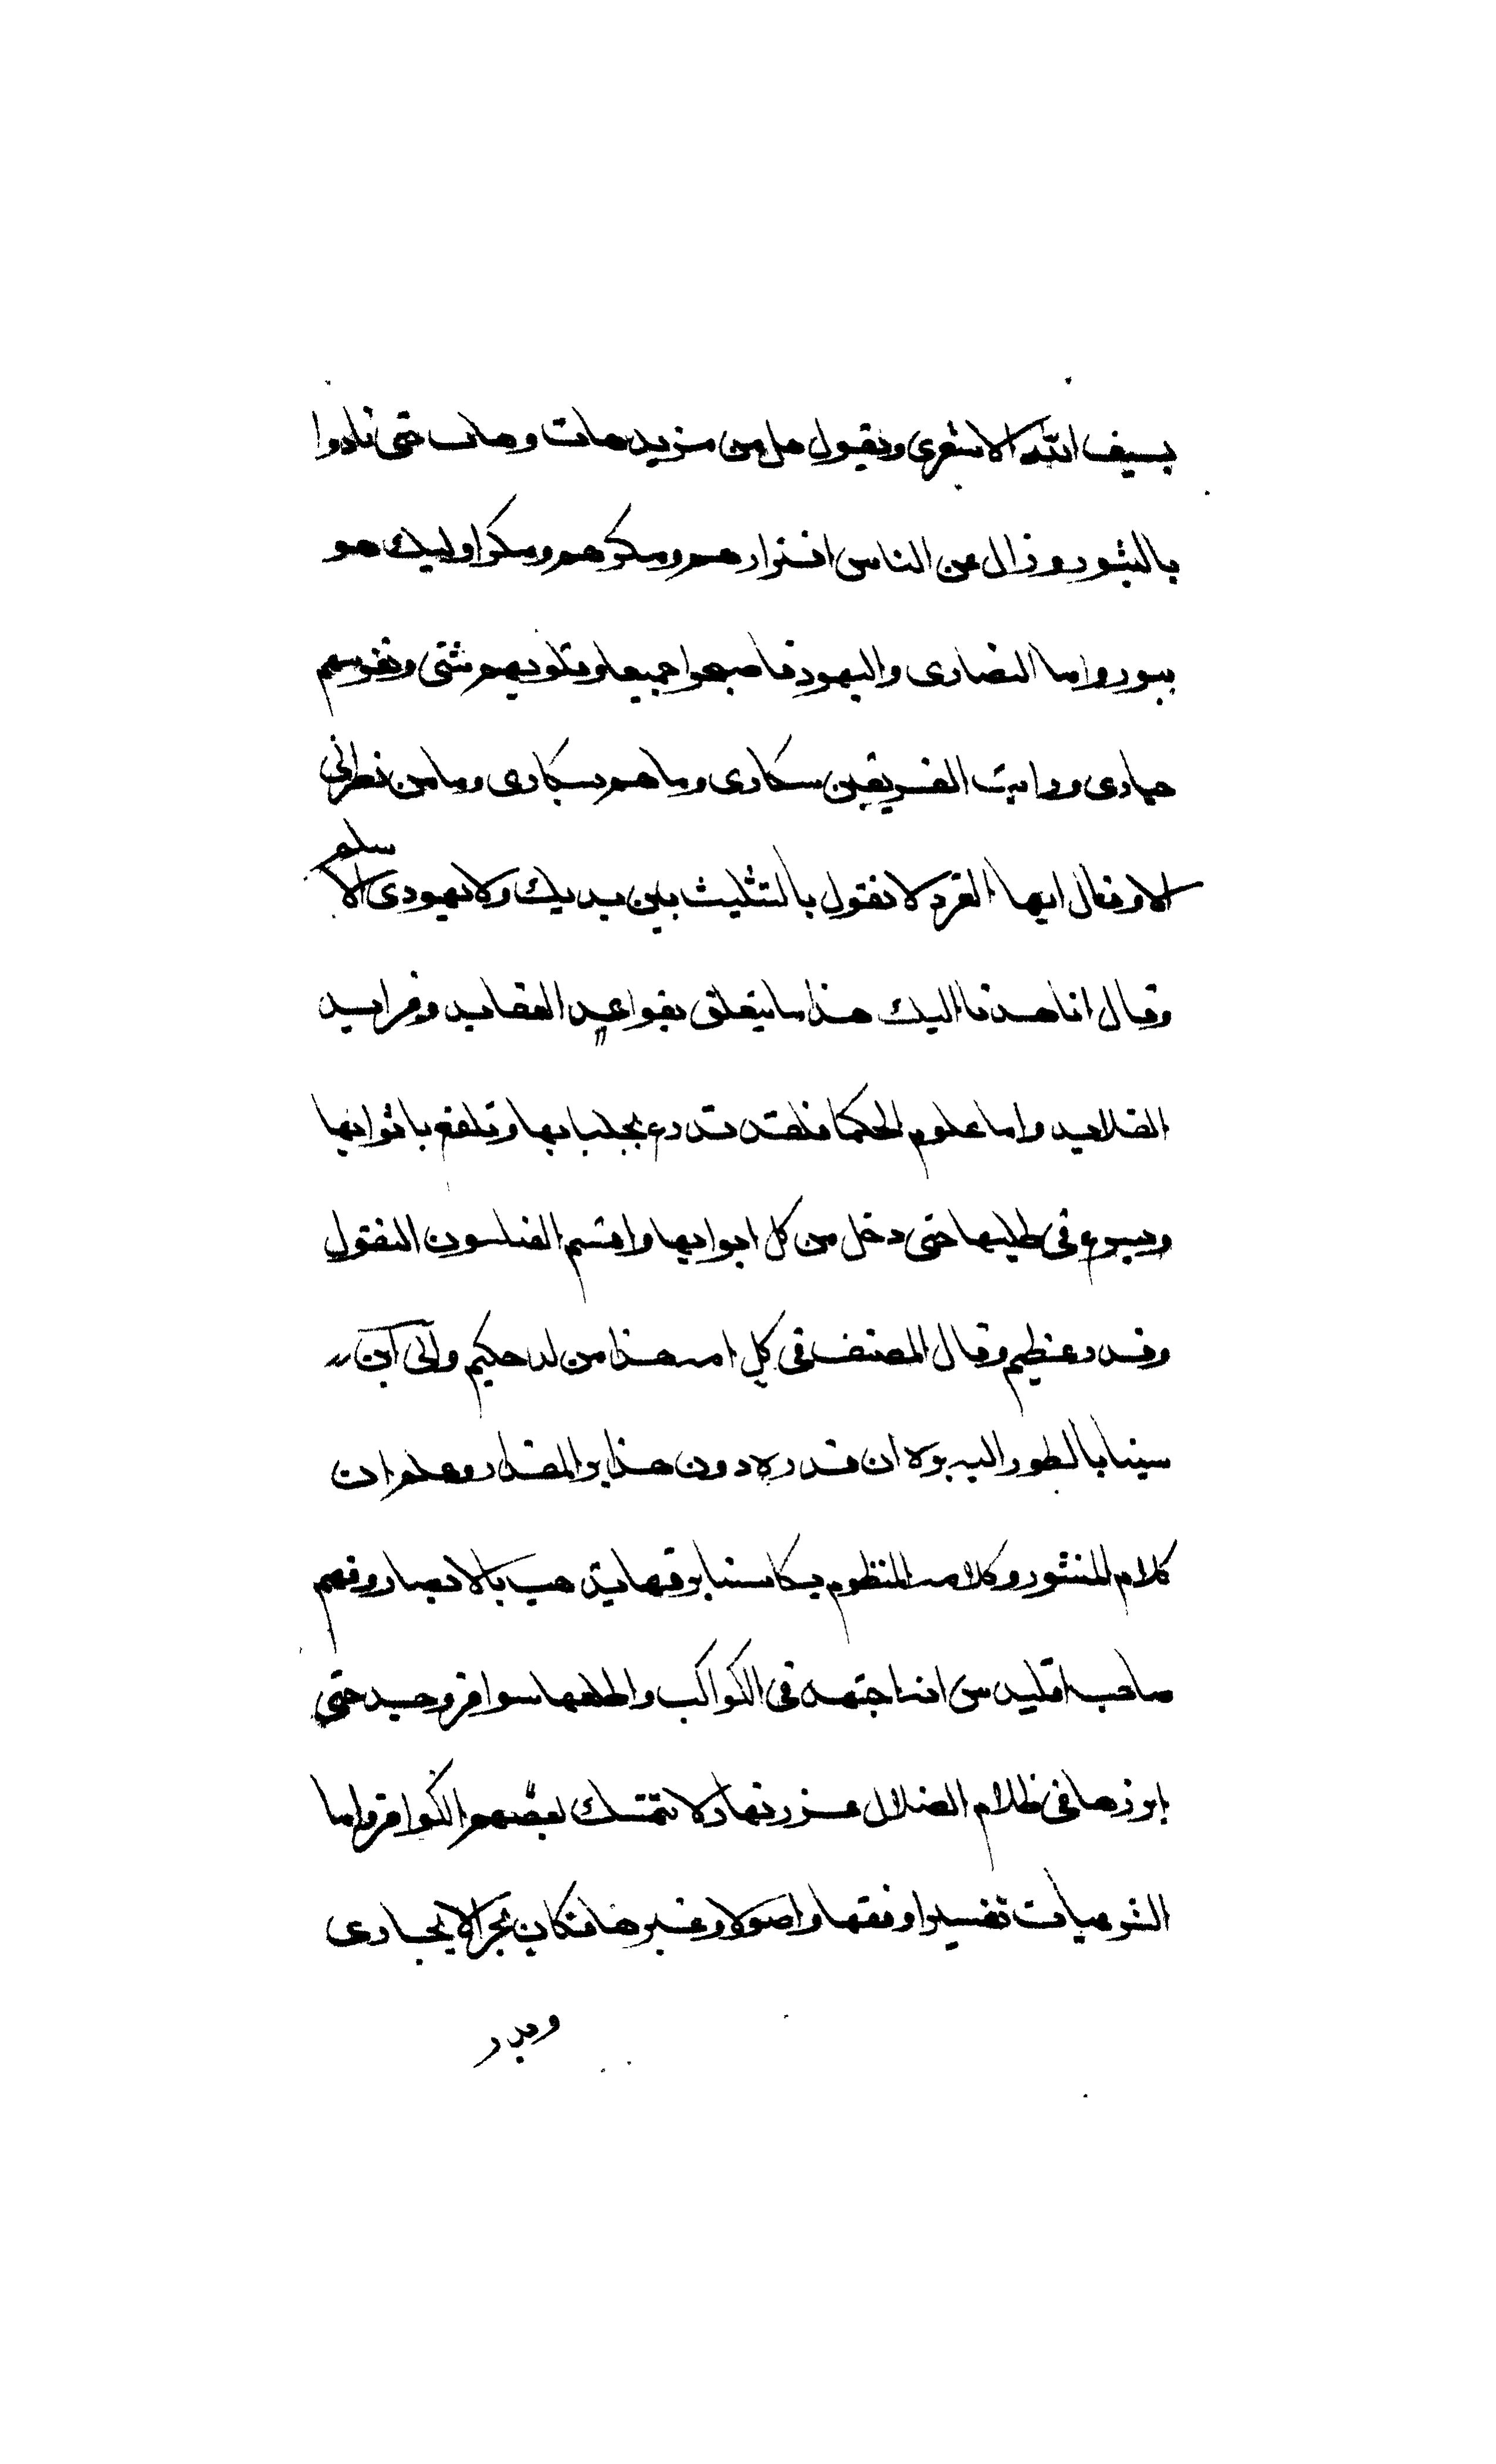 بسيف الله الاشعرى ويقول هل من مزيد هات وهات حتى نادوا
بالثبور وزال عن الناس افترارهم ومكرهم ومكر اوليك هو
يبور واما النصارى واليهود فاصبحوا جميعا وقلوبهم شتى ونفوسهم
حيارى ورايت الفريقين سكارى وما هم بسكارى وما من نصرانى
الا وقال ايها الفرد لا نقول بالتثليث بين يديك ولا يهودى الا سلم
وقال انا هدنا اليك هذا ما يتعلق بقواعد العقايد وفرايد
القلايد واما علوم الحكما فلقد تدرع بجلبابها وتلفع باثوابها
وتسرع فى طلبها حتى دخل من كل ابوابها واقسم الفيلسوف
وقدر عظيم وقال المصنف فى كل امر هذا من لدن حكيم وآلى ابن
سينا بالطور اليه بولا ان قدره دون هذا المقدار وعلم ان
كلامه المنثور وكلامه المنظوم يكاد سنا برقهما يذهب بالابصار وفهم
صاحب اقليدس انه اجتهد فى الكواكب واطلعها سوافر وجد حتى
ابرزها فى ظلام الضلال غرر نهار لا يتمسك بعصم الكوافر واما
الشرعيات تفسيرا وفقها واصولا وغيرها فكان بحرا لا يجارى
وبدر